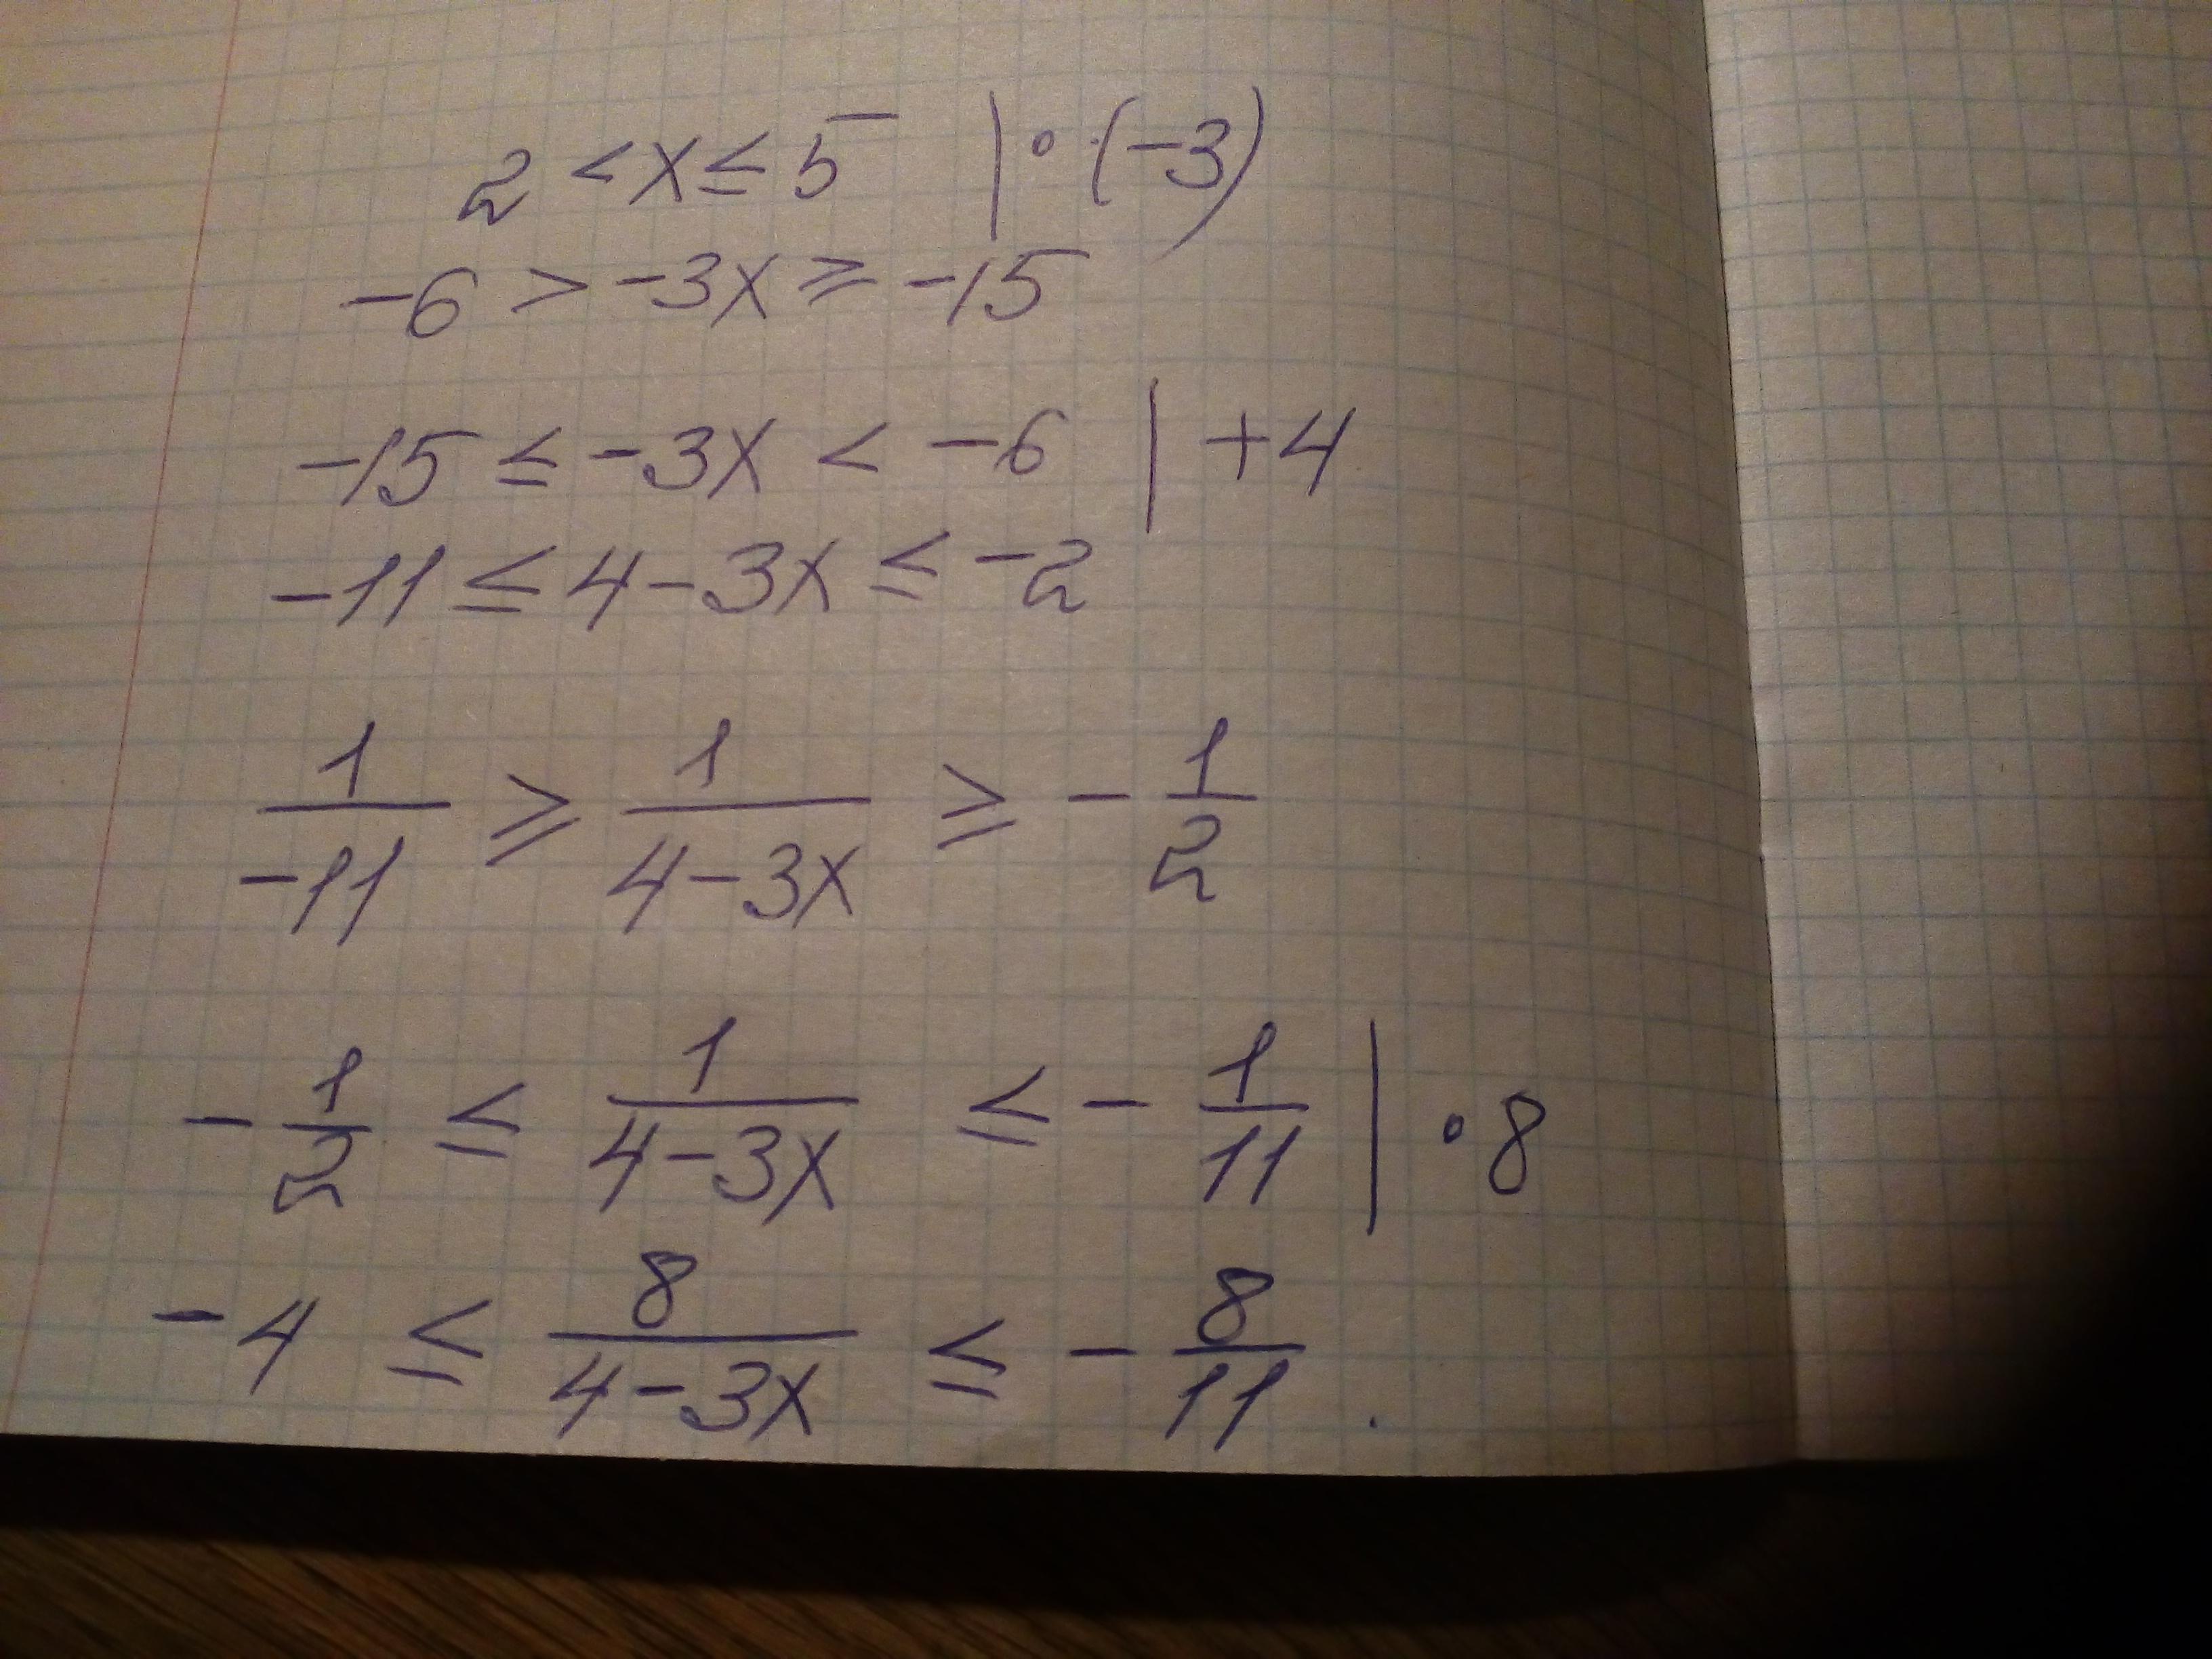 2 < x ≤ 5 | · (-3)
-6 > -3x ≥ -15
-15 ≤ -3x < -6 | +4
-11 ≤ 4-3x ≤ -2
1/-11 ≥ 1/4-3x ≥ -1/2
-1/2 ≤ 1/4-3x ≤ -1/11 | · 8
-4 ≤ 8/4-3x ≤ -8/11 .